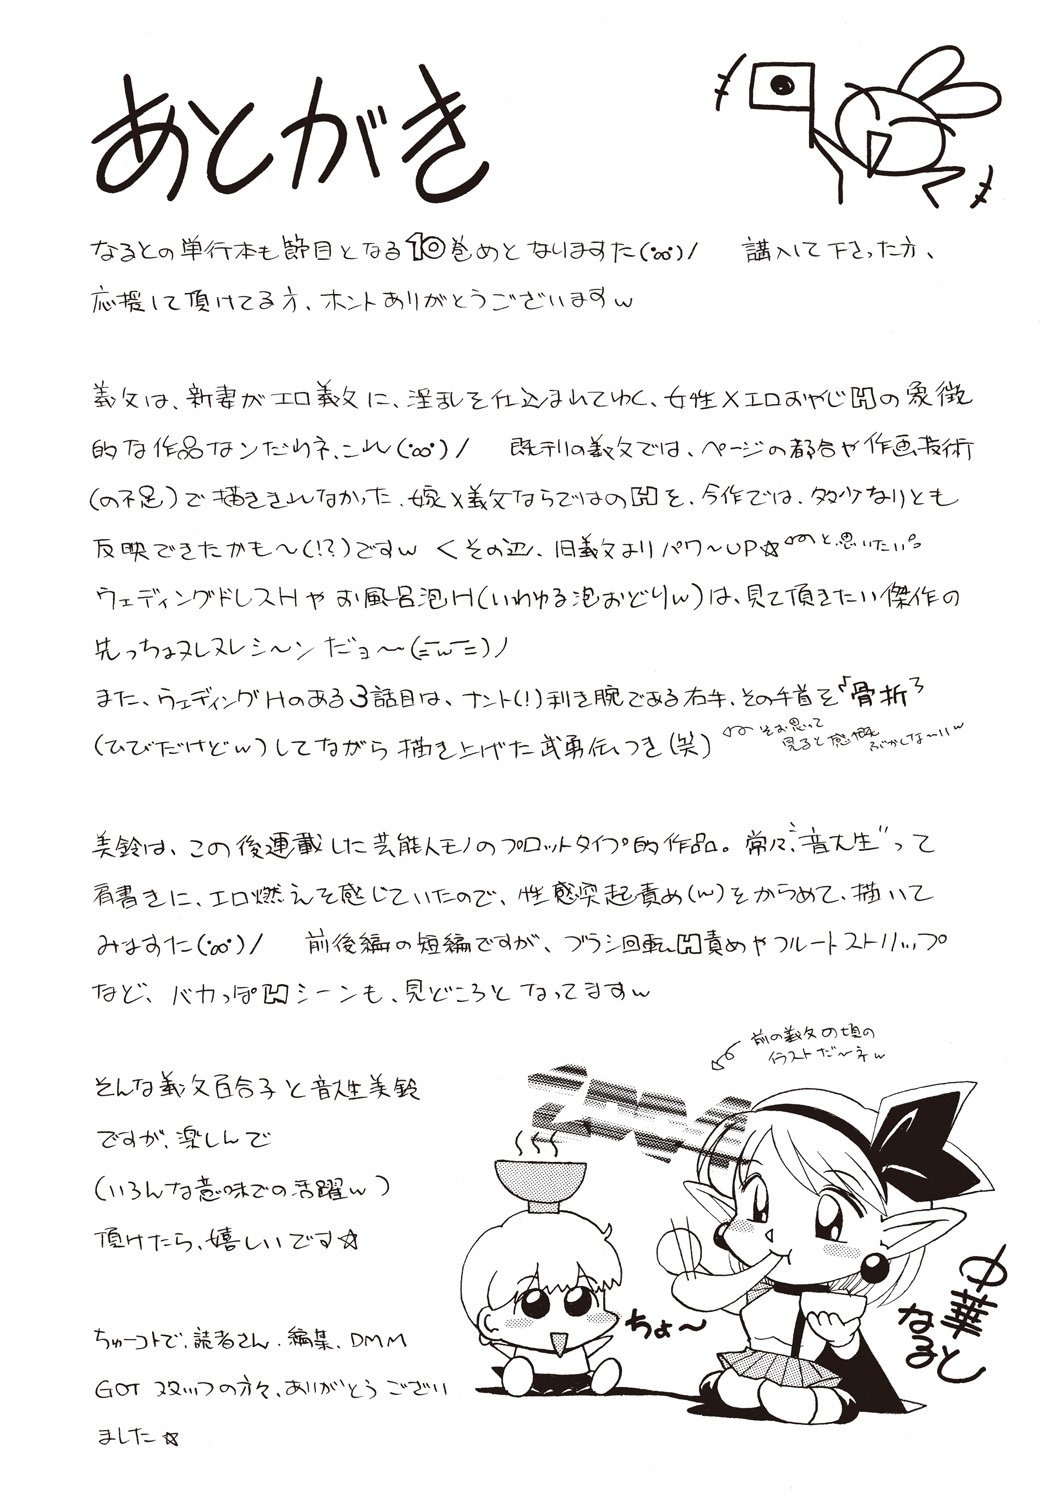 あとがき
なるとの単行本も節目となる10巻めとなりますた(°∞°)/　講入して下さった方、
応援して頂けてる方、ホントありがとうございますw
義父は、新妻がエロ義父に、淫乱を仕込まれてゆく、女性×エロおやじHの象徴
的な作品なンだわネ、これ(°∞°)/　既刊の義父では、ページの都合や作画技術
(の不足)で描ききれなかった、嫁×義父ならではのHを、今作では、多少なりとも
反映できたかも〜(!?)ですw くその辺、旧義父よりパワ〜UP☆ と、思いたい。
ウェディングドレスHや お風呂泡H(いわゆる泡おどりw)は、見て頂きたい傑作の
先っちょヌレヌレシ〜ン だョ〜(ΞwΞ)ノ
また、ウェディングHのある3話目は、ナント(!)利き腕である右手、その手首を「骨折」
(ひびだけどw)してながら 描き上げた武勇伝つき(笑)
そお思って
見ると感慨
ぶかしな〜いw
美鈴は、この後連載した芸能人モノのプロットタイプ的作品。常々、"音大生"って
肩書きに、エロ燃えを感じていたので、性感突起責め(w)をからめて、描いて
みますた(°∞°)/　前後編の短編ですが、ブラシ回転H責めやフルートストリップ
など、バカっぽHシーンも、見どころと なってますw
前の義父の頃の
イラストだ〜ネw
そんな義父百合子と音大生美鈴
ですが、楽しんで
(いろんな意味での活躍w)
頂けたら、嬉しいです☆
ちょ〜
中華
なると
ちゅーコトで、読者さん、編集、DMM
GOT スタッフの方々、ありがとう ござい
ました☆